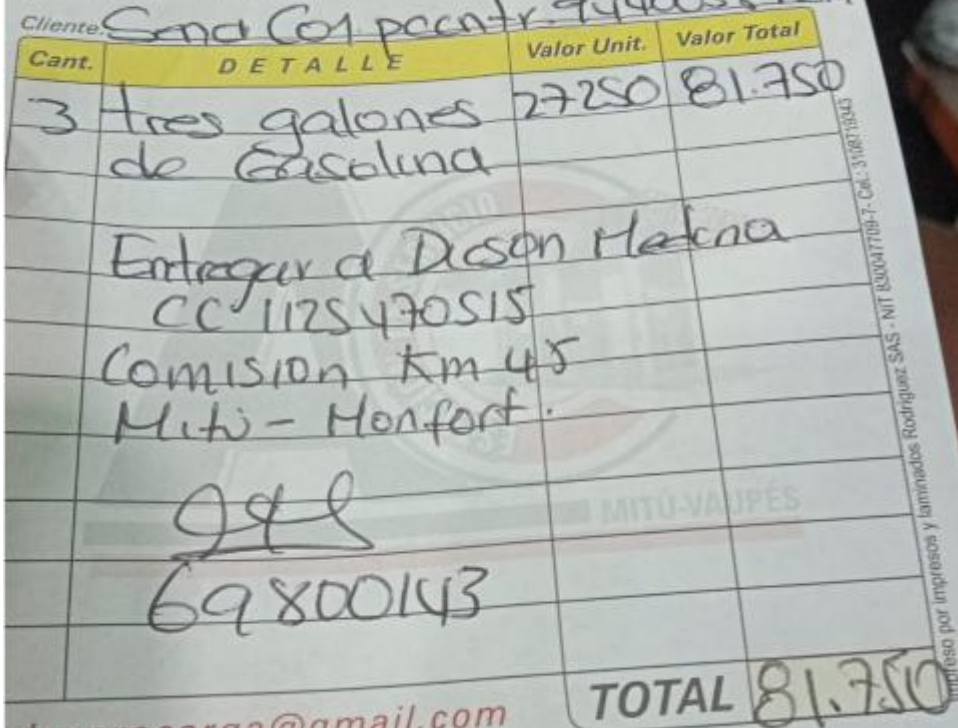 Cliente: Sena Co1 pccntr.
Cant. DETALLE Valor Unit. Valor Total
3 tres galones 27250 81.750
de Gasolina
Entregar a Dicson Medina
CC 1125470515
Comision Km 45
Mitú - Monfort.
MITÚ-VAUPÉS
69800143
TOTAL 81.750
@gmail.com
impreso por impresos y laminados Rodríguez SAS - NIT 830047709-7- Cel.: 3108719343